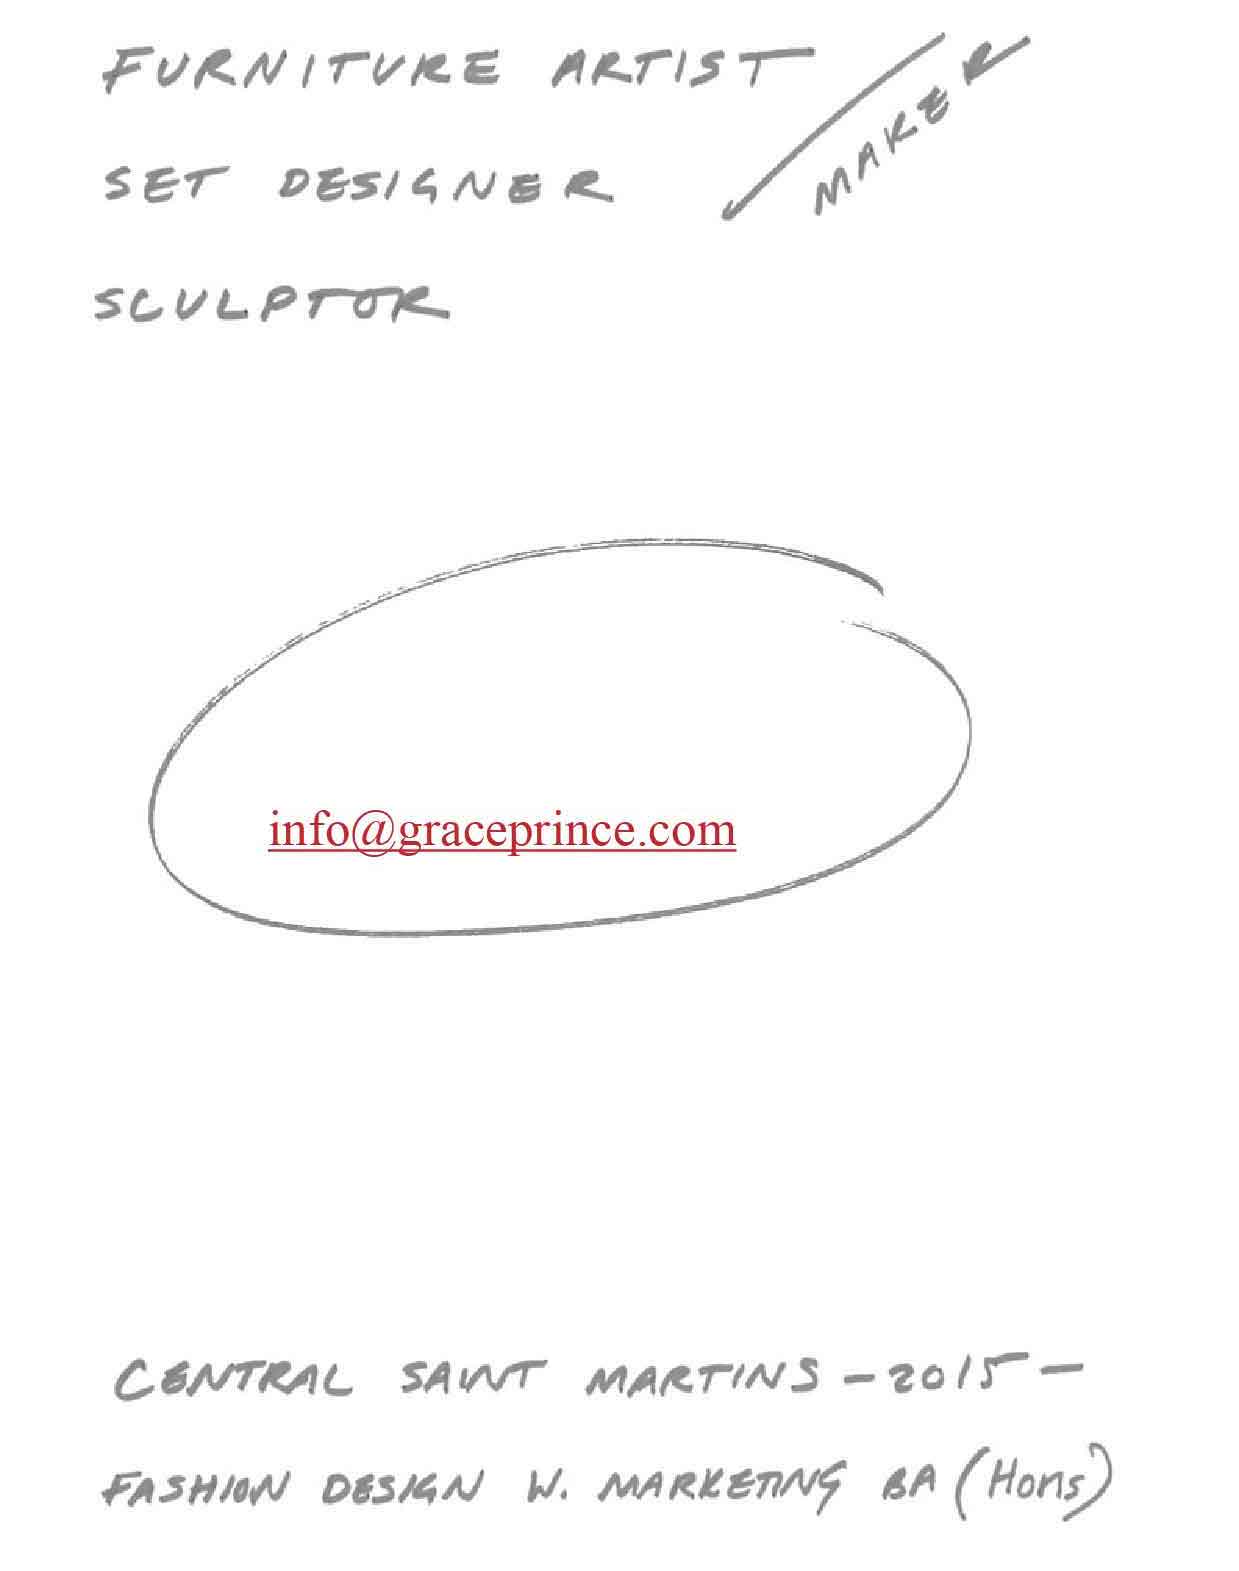 FURNITURE ARTIST
MAKER
SET DESIGNER
SCULPTOR
info@graceprince.com
CENTRAL SAINT MARTINS - 2015 -
FASHION DESIGN W. MARKETING BA (Hons)